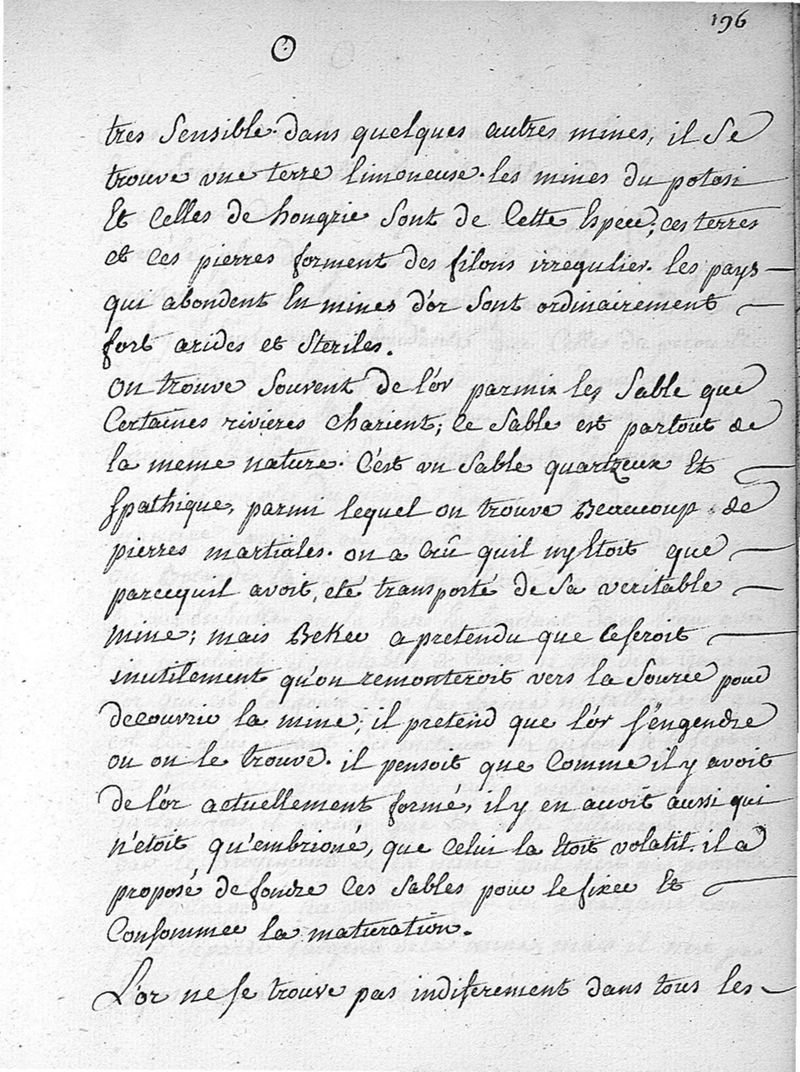 196
tres sensible. dans quelques autres mines, il se
trouve vne terre limoneuse. les mines du potosi
Et celles de hongrie sont de Cette Espece; ces terres
et ces pierres forment des filons irregulier. les pays
qui abondent En mines d'or sont ordinairement
fort arides et steriles.
on trouve souvent de l'or parmix les sable que
Certaines rivieres charient; ce sable est partout de
la meme nature. C'est vn sable quartzeux Et
spathique, parmi lequel on trouve Beaucoup de
pierres martiales. on a Crû quil ny Etoit que
parcequil avoit, eté transporté de sa veritable
mine; mais BeKer a pretendu que ce seroit
inutilement qu'on remonteroit vers la source pour
decouvrir la mine; il pretend que l'or s'engendre
ou on le trouve. il pensoit que Comme il y avoit
de l'or actuellement formé, il y en avoit aussi qui
n'étoit qu'embrioné, que celui la Etoit volatil. il a
proposé de fondre Ces sables pour le fixer Et
Consommer la maturation.
L'or ne se trouve pas indiferement dans tous les